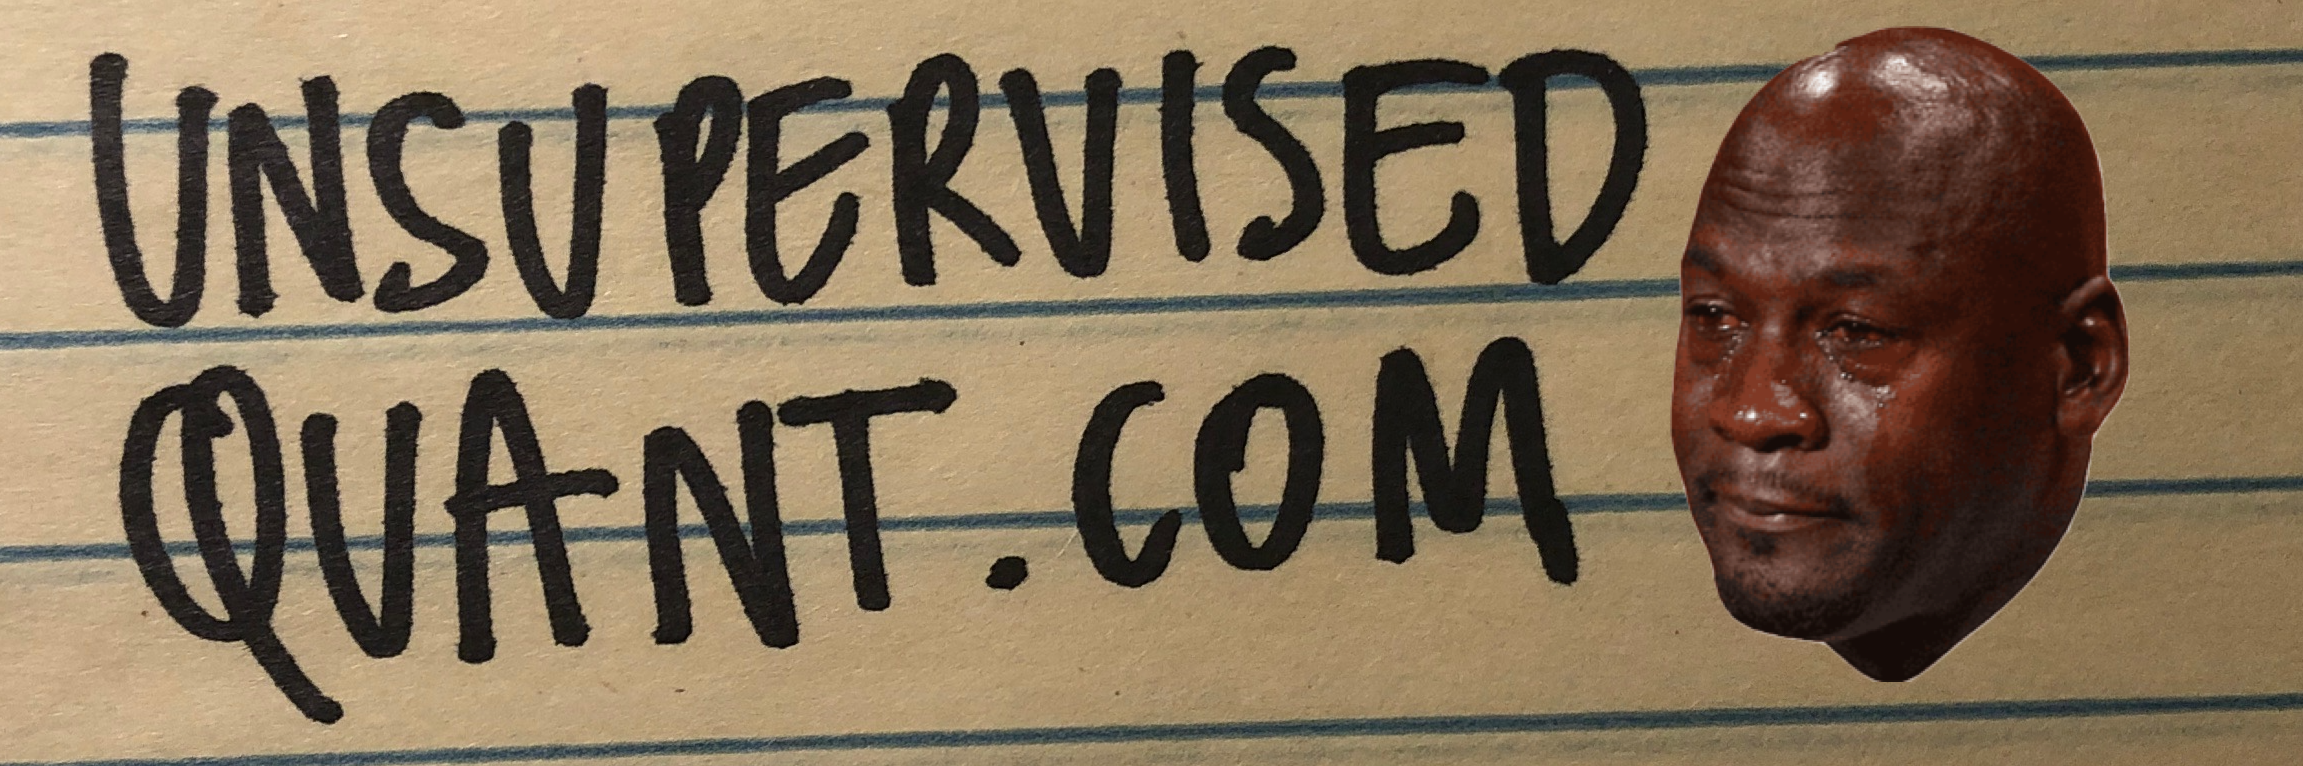 UNSUPERVISED
QUANT.COM